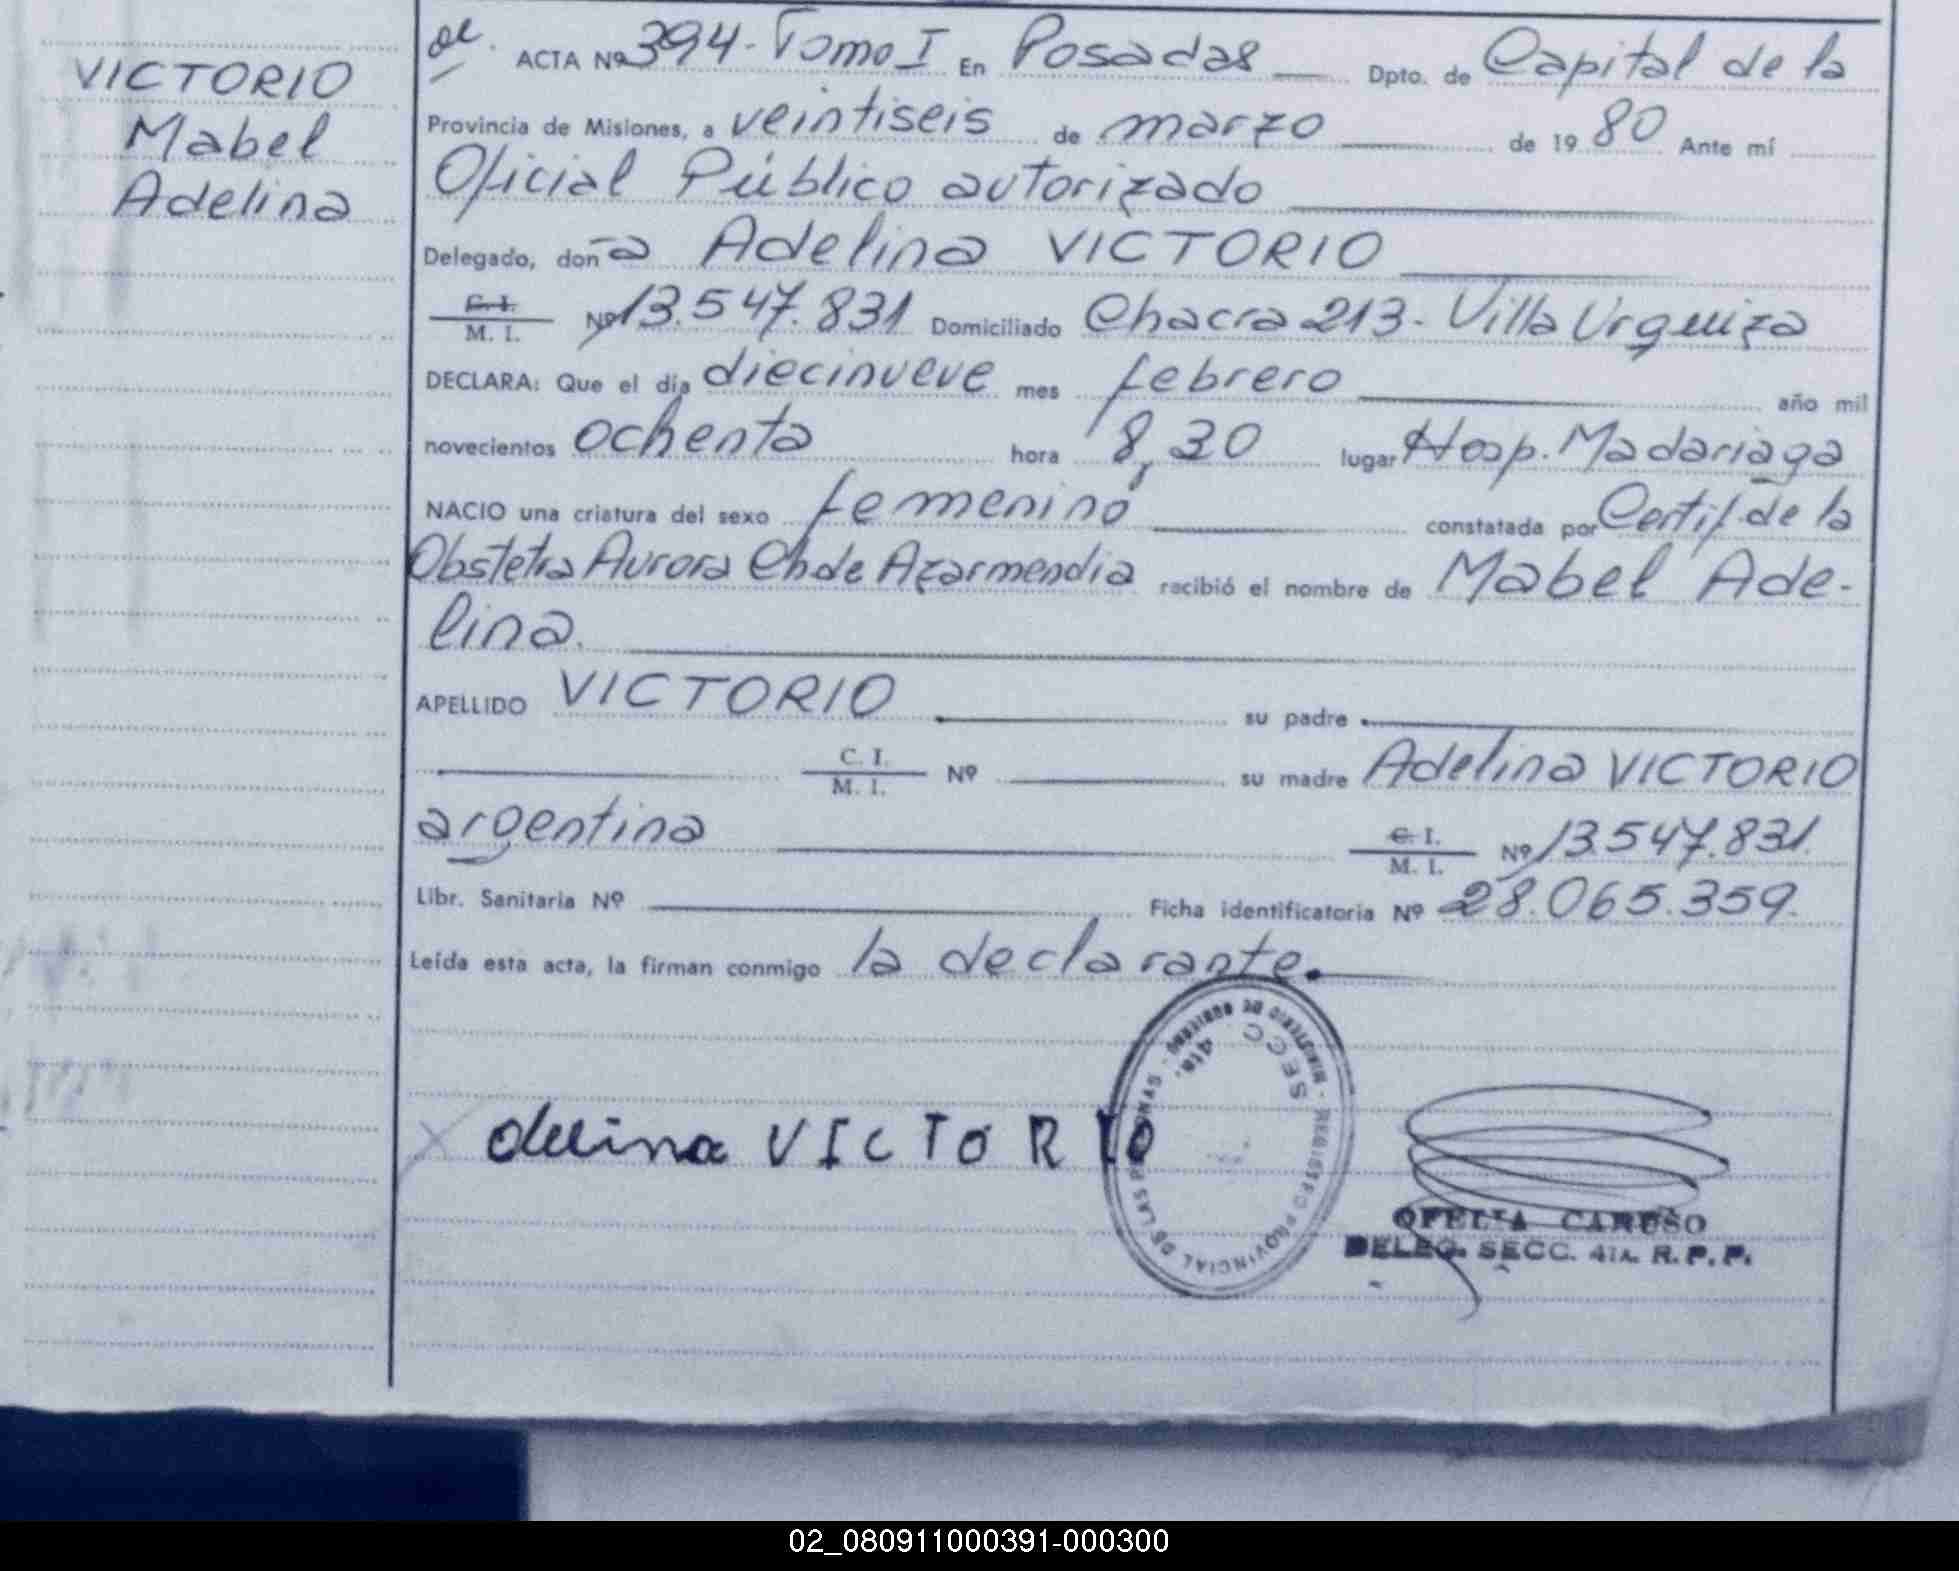 VICTORIO
Mabel
Adelina
ACTA Nº 394 - Tomo I En Posadas Dpto. de Capital de la
Provincia de Misiones, a veintiseis de marzo de 19 80 Ante mí
Oficial Público autorizado
Delegado, doña Adelina VICTORIO
C. I.
M. I. Nº 13.547.831 Domiciliado Chacra 213 - Villa Urquiza
DECLARA: Que el día diecinueve mes febrero año mil
novecientos ochenta hora 8,30 lugar Hosp. Madariaga
NACIO una criatura del sexo femenino constatada por Certif. de la
Obstetra Aurora Ch de Azarmendia recibió el nombre de Mabel Ade-
lina.
APELLIDO VICTORIO su padre
C. I.
M. I. Nº su madre Adelina VICTORIO
argentina C. I.
M. I. Nº 13.547.831.
Libr. Sanitaria Nº Ficha identificatoria Nº 28.065.359.
Leída esta acta, la firman conmigo la declarante.
REGISTRO PROVINCIAL DE LAS PERSONAS - MINISTERIO DE GOBIERNO
4ta. SECC
delina VICTORIO
OFELIA CARUSO
DELEG. SECC. 4TA. R.P.P.
02_080911000391-000300